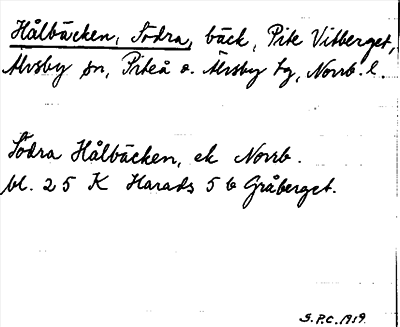 Hålbäcken, Södra, bäck, Pite Vitberget,
Älvsby sn, Piteå o. Älvsby tg, Norrb. l.
Södra Hålbäcken, ek Norrb.
bl. 25 K Harads 5 b Gråberget.
S.P.C. 1919.